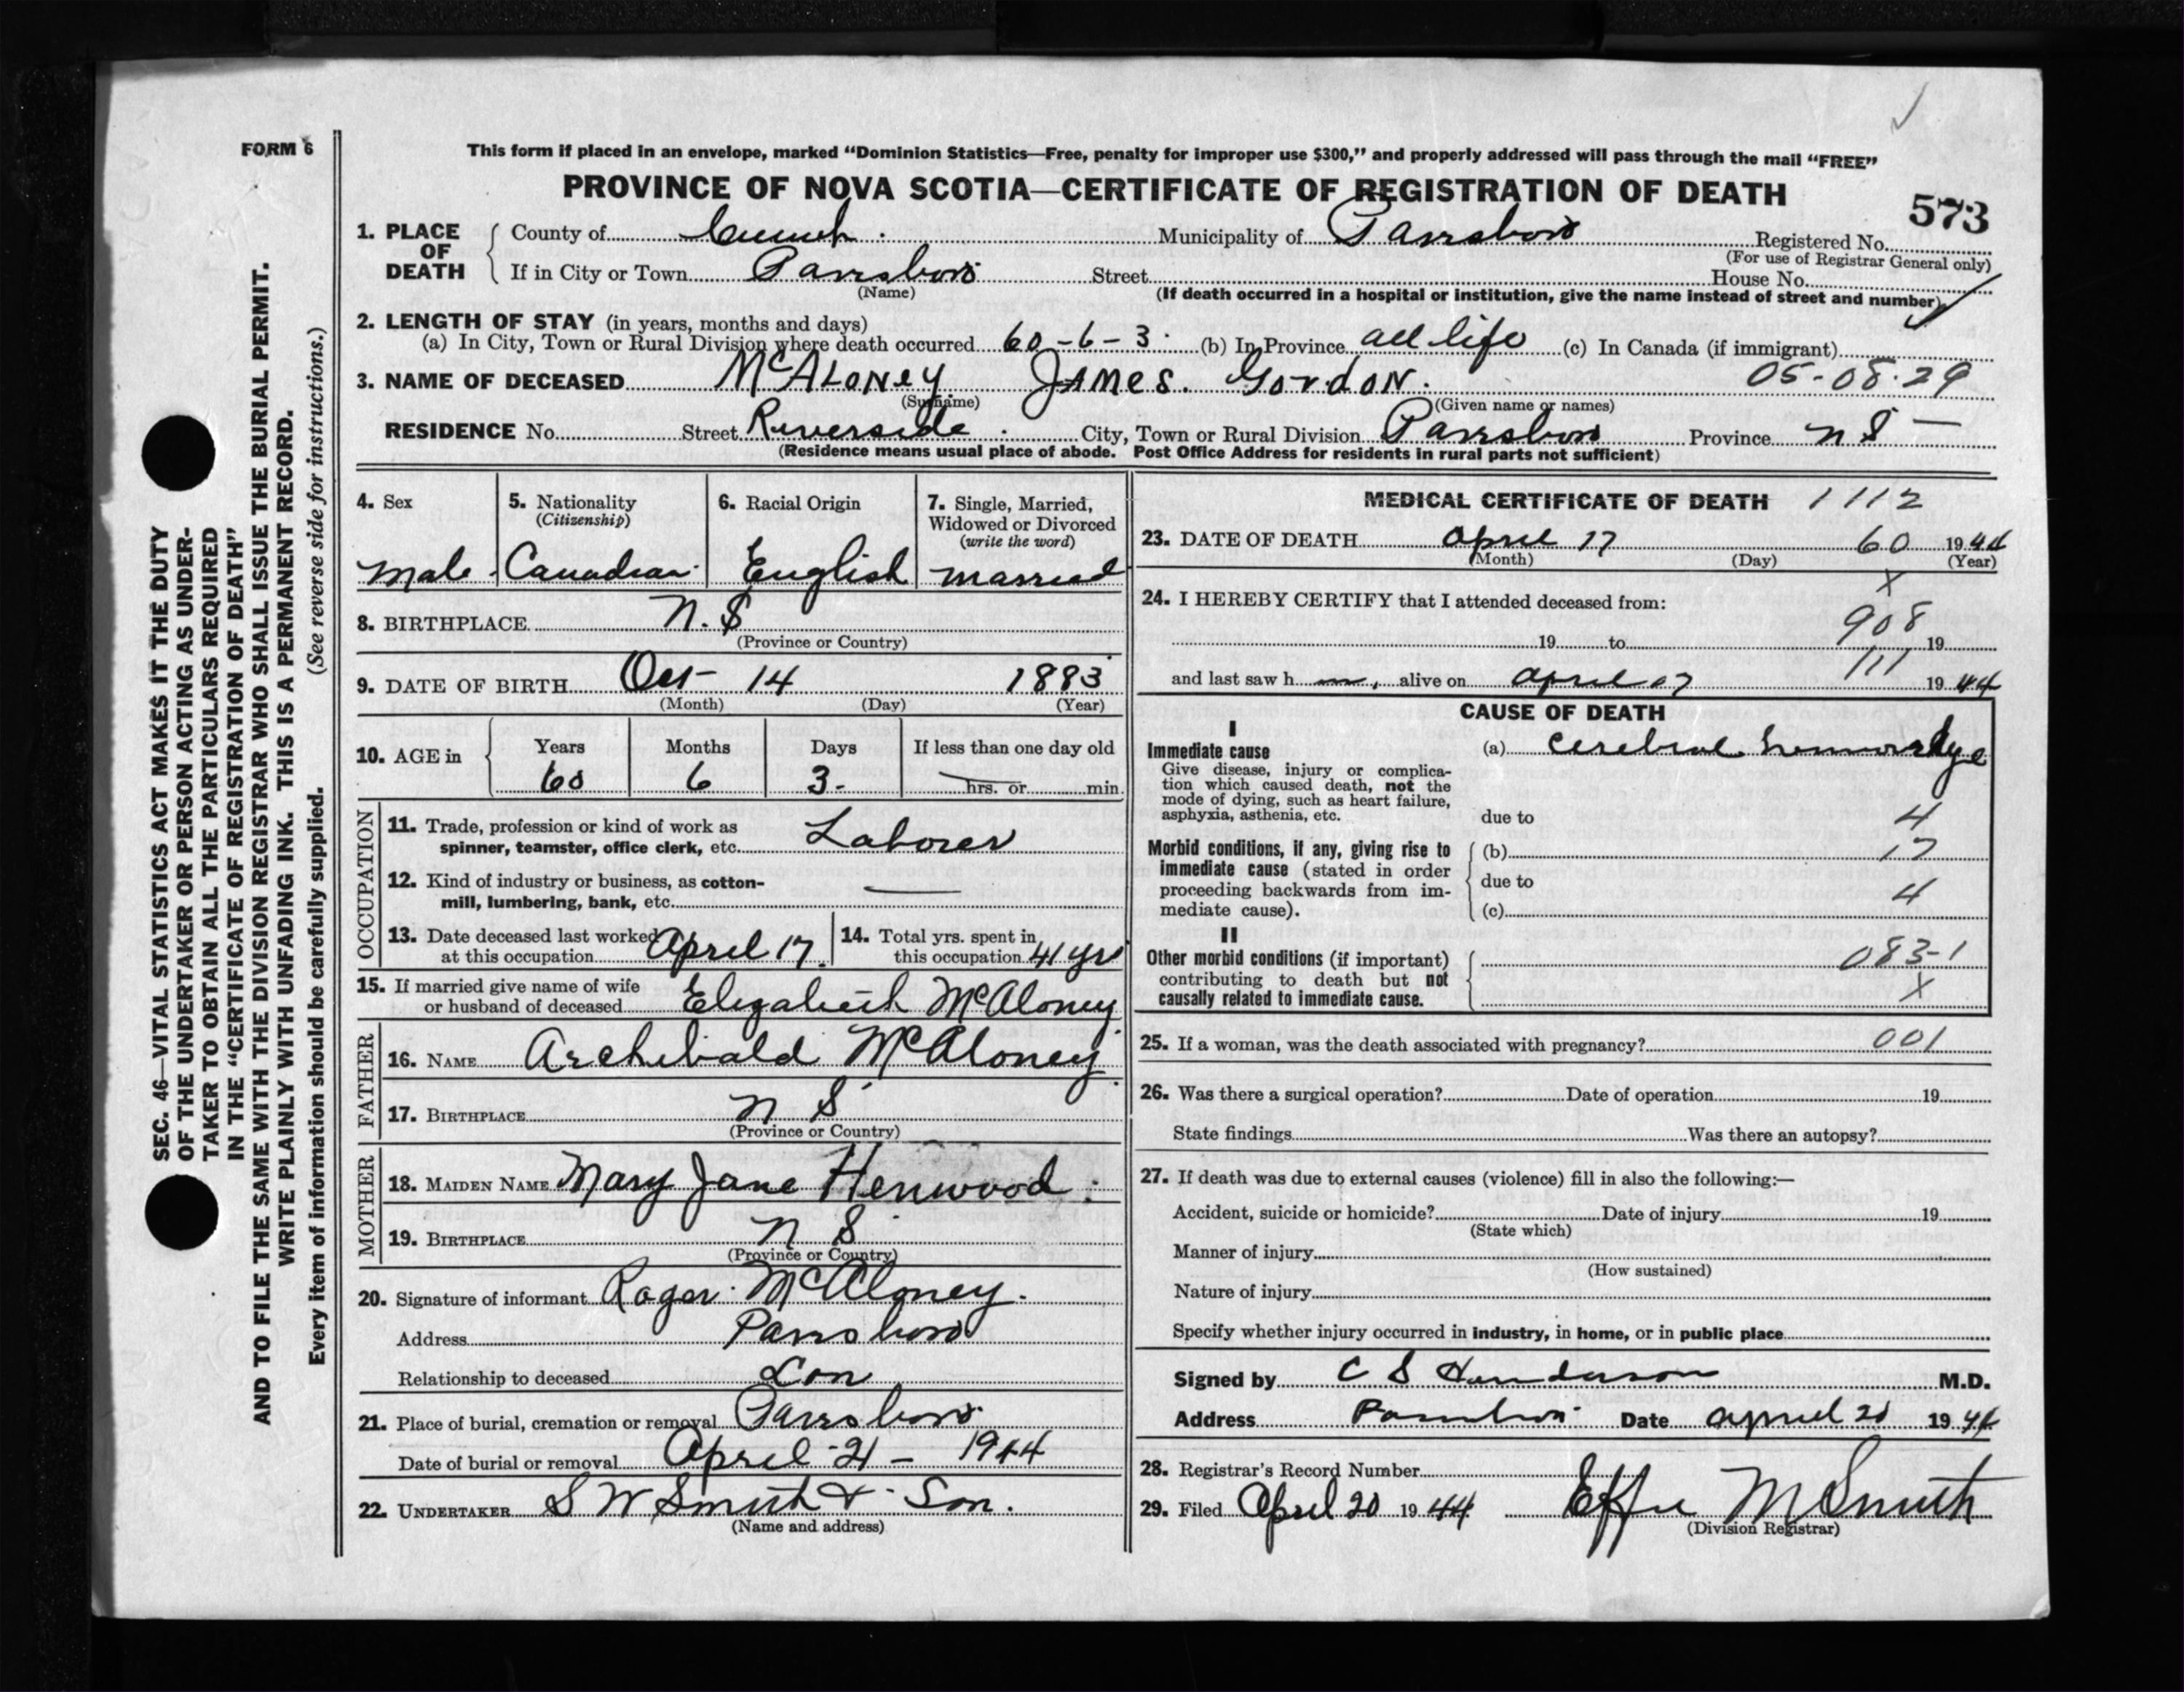 FORM 6
This form if placed in an envelope, marked “Dominion Statistics—Free, penalty for improper use $300,” and properly addressed will pass through the mail “FREE”
PROVINCE OF NOVA SCOTIA—CERTIFICATE OF REGISTRATION OF DEATH
573
1. PLACE OF DEATH
County of Municipality of Parrsboro Registered No.
(For use of Registrar General only)
If in City or Town Parrsboro Street House No.
(Name) (If death occurred in a hospital or institution, give the name instead of street and number)
2. LENGTH OF STAY (in years, months and days)
(a) In City, Town or Rural Division where death occurred 60-6-3 (b) In Province all life (c) In Canada (if immigrant)
05-08-29
3. NAME OF DECEASED McALONEY JAMES. GORDON.
(Surname) (Given name or names)
RESIDENCE No. Street Riverside City, Town or Rural Division Parrsboro Province N S
(Residence means usual place of abode. Post Office Address for residents in rural parts not sufficient)
4. Sex
Male
5. Nationality
(Citizenship)
Canadian
6. Racial Origin
English
7. Single, Married,
Widowed or Divorced
(write the word)
married
8. BIRTHPLACE N. S
(Province or Country)
9. DATE OF BIRTH Oct 14 1883
(Month) (Day) (Year)
10. AGE in Years Months Days If less than one day old
60 6 3 hrs. or min.
OCCUPATION
11. Trade, profession or kind of work as
spinner, teamster, office clerk, etc. Laborer
12. Kind of industry or business, as cotton-
mill, lumbering, bank, etc. —
13. Date deceased last worked
at this occupation April 17
14. Total yrs. spent in
this occupation 41 yrs
15. If married give name of wife
or husband of deceased Elizabeth McAloney
FATHER
16. NAME Archibald McAloney
17. BIRTHPLACE N S
(Province or Country)
MOTHER
18. MAIDEN NAME Mary Jane Henwood
19. BIRTHPLACE N S
(Province or Country)
20. Signature of informant Roger McAloney.
Address Parrsboro
Relationship to deceased Son
21. Place of burial, cremation or removal Parrsboro
Date of burial or removal April 21 – 1944
22. UNDERTAKER S W Smith & Son.
(Name and address)
MEDICAL CERTIFICATE OF DEATH 1112
23. DATE OF DEATH April 17 60 1944
(Month) (Day) (Year)
X
24. I HEREBY CERTIFY that I attended deceased from:
908
19 to 19
111
and last saw h m, alive on April 17 1944
CAUSE OF DEATH
I
Immediate cause
Give disease, injury or complica-
tion which caused death, not the
mode of dying, such as heart failure,
asphyxia, asthenia, etc.
(a) Cerebral hemorrhage
due to 4
Morbid conditions, if any, giving rise to
immediate cause (stated in order
proceeding backwards from im-
mediate cause).
(b) 17
due to 4
(c)
II
Other morbid conditions (if important)
contributing to death but not
causally related to immediate cause.
083-1
X
25. If a woman, was the death associated with pregnancy? 001
26. Was there a surgical operation? Date of operation 19
State findings Was there an autopsy?
27. If death was due to external causes (violence) fill in also the following:—
Accident, suicide or homicide? Date of injury 19
(State which)
Manner of injury
(How sustained)
Nature of injury
Specify whether injury occurred in industry, in home, or in public place
Signed by C S Henderson M.D.
Address Parrsboro Date April 20 1944
28. Registrar's Record Number
29. Filed April 20 1944 Effie M Smith
(Division Registrar)
SEC. 46—VITAL STATISTICS ACT MAKES IT THE DUTY
OF THE UNDERTAKER OR PERSON ACTING AS UNDER-
TAKER TO OBTAIN ALL THE PARTICULARS REQUIRED
IN THE “CERTIFICATE OF REGISTRATION OF DEATH”
AND TO FILE THE SAME WITH THE DIVISION REGISTRAR WHO SHALL ISSUE THE BURIAL PERMIT.
WRITE PLAINLY WITH UNFADING INK. THIS IS A PERMANENT RECORD.
Every item of information should be carefully supplied. (See reverse side for instructions.)